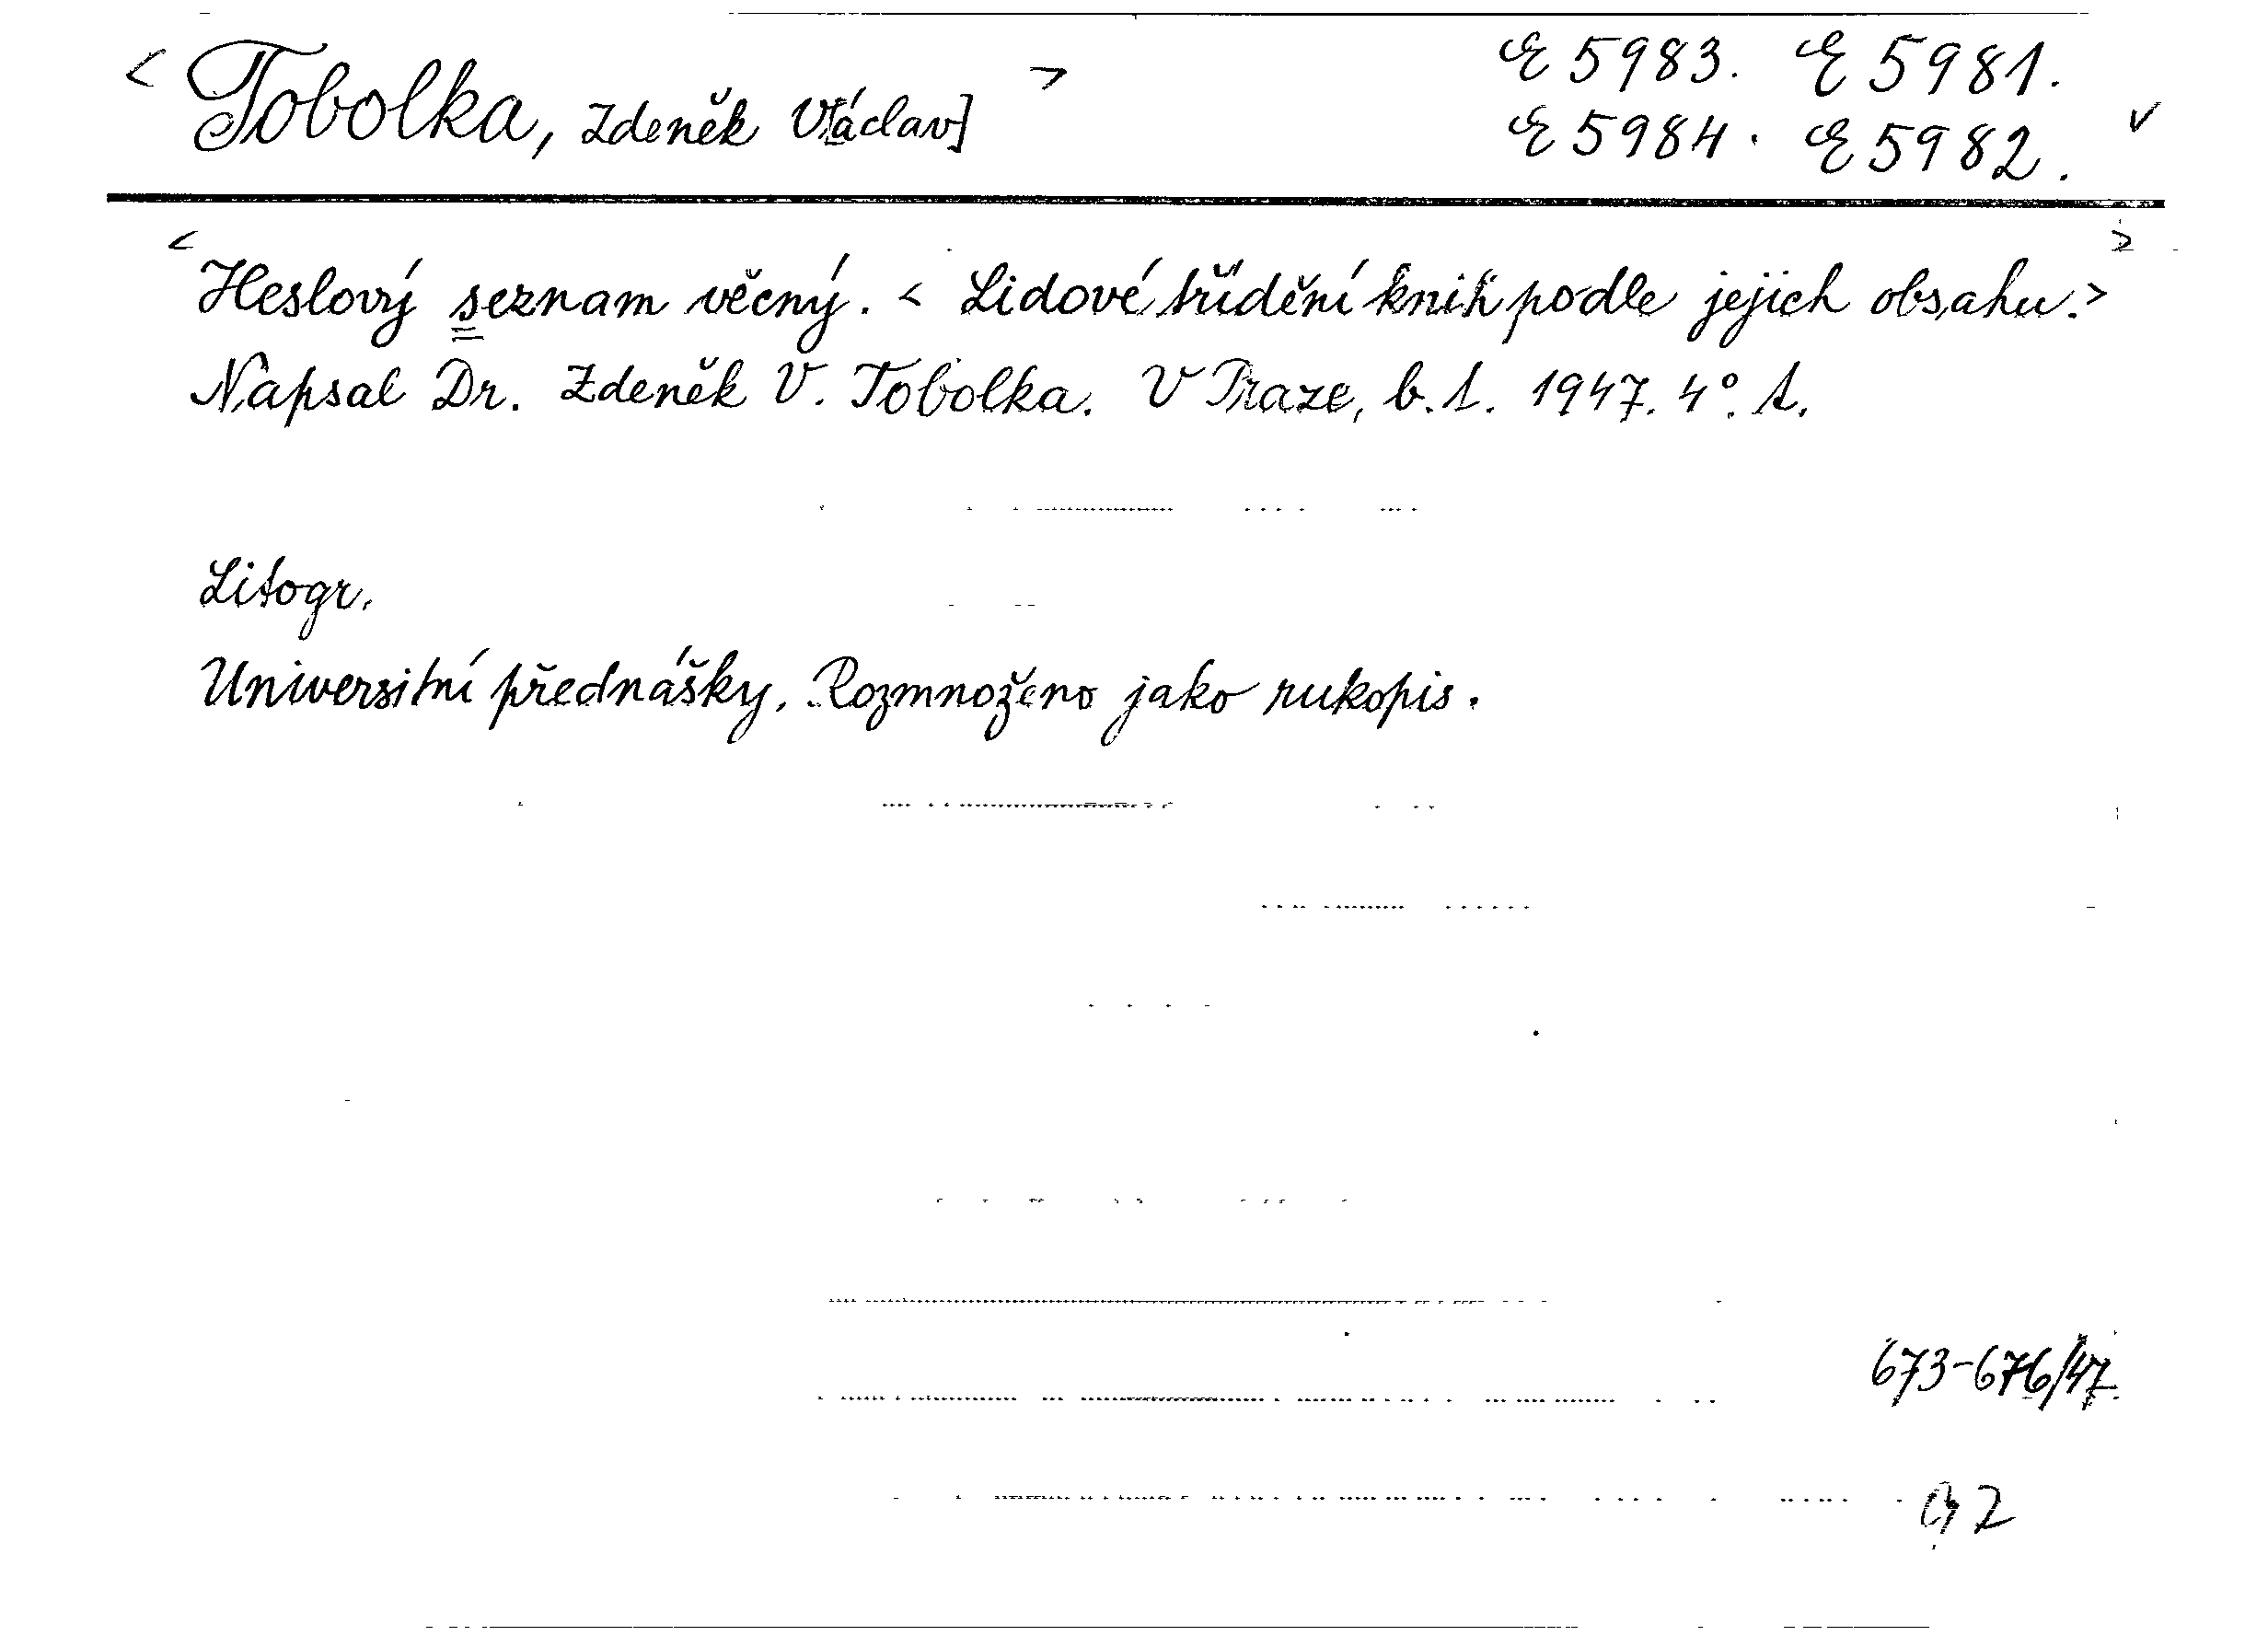 < Tobolka, Zdeněk V[áclav] >
E 5983. E 5981.
E 5984. E 5982. v
< Heslový seznam věcný. < Lidové třídění knih podle jejich obsahu. > >
Napsal Dr. Zdeněk V. Tobolka. V Praze, b. t. 1947. 4°. t.
Litogr.
Universitní přednášky. Rozmnoženo jako rukopis.
673-676/47